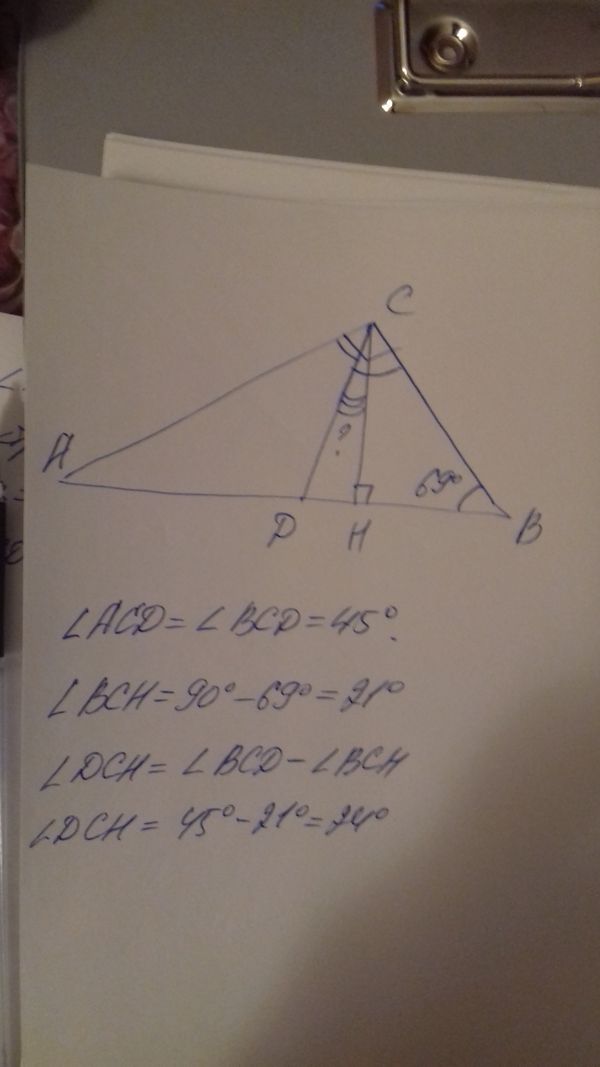 C
A
?
69°
D
H
B
∠ACD = ∠BCD = 45°.
∠BCH = 90° - 69° = 21°
∠DCH = ∠BCD - ∠BCH
∠DCH = 45° - 21° = 24°